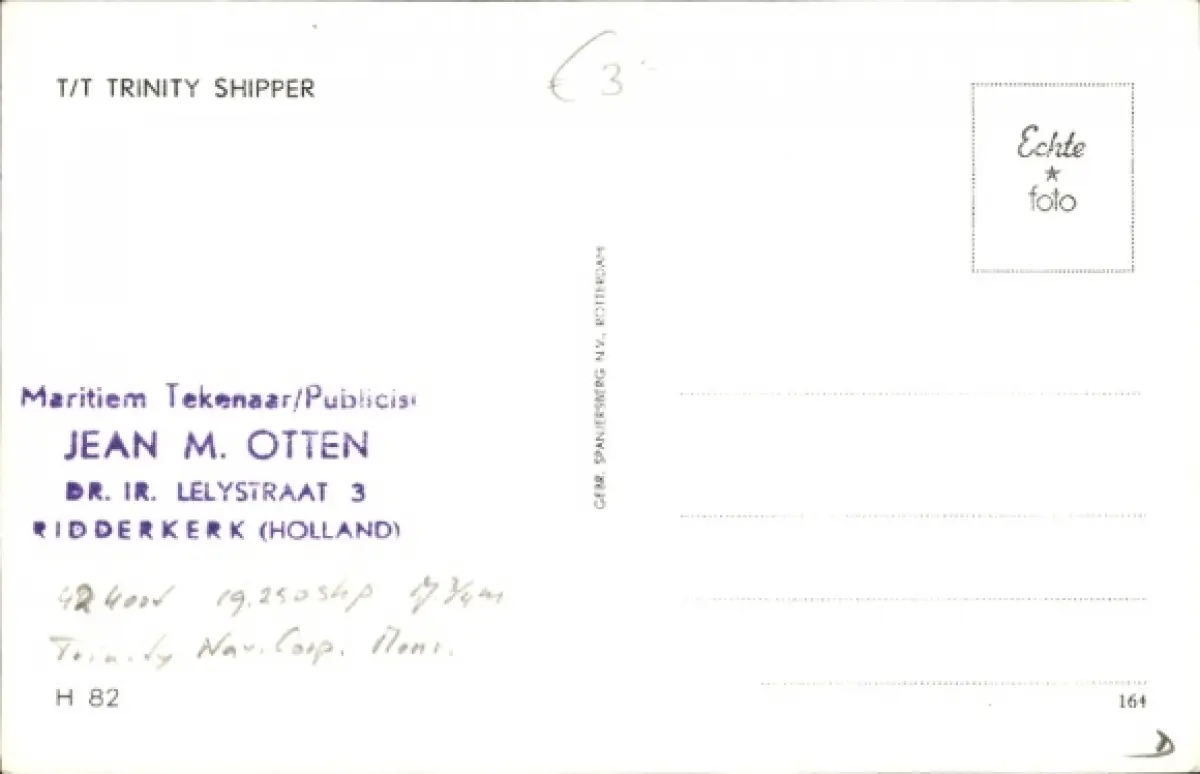 T/T TRINITY SHIPPER
€ 3
Echte
foto
GEBR. SPANJERSBERG N.V., ROTTERDAM
Maritiem Tekenaar/Publicist
JEAN M. OTTEN
DR. IR. LELYSTRAAT 3
RIDDERKERK (HOLLAND)
19.250 shp 17 3/4 m
Trinity Nav. Corp. Monr.
H 82
164